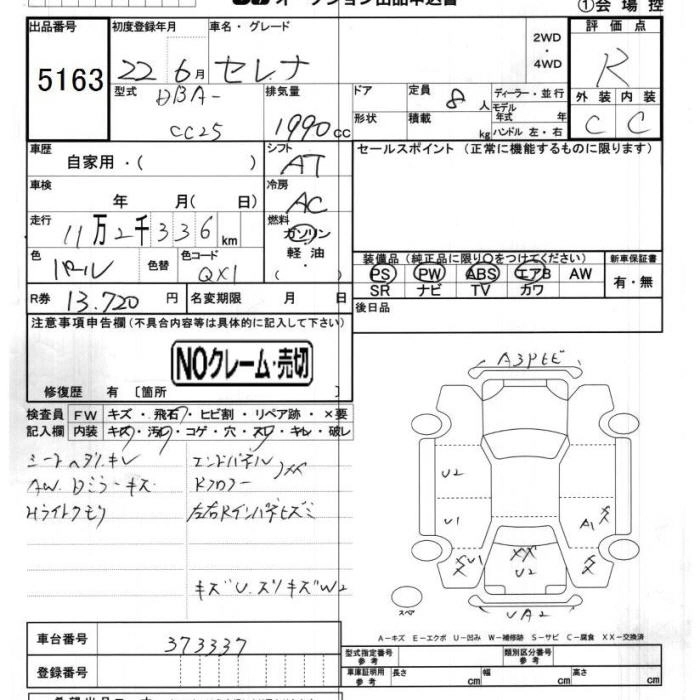 オークション出品申込書 ①会場控
出品番号 初度登録年月 車名・グレード 2WD・4WD 評価点
5163 22 6月 セレナ R
型式 排気量 ドア 定員 8人 ディーラー・並行 外装 内装
DBA- 1990cc 形状 積載 kg モデル年式 年式 ハンドル 左・右 C C
CC25
車歴 自家用・( ) シフト AT セールスポイント(正常に機能するものに限ります)
車検 年 月( 日) 冷房 AC
走行 11万2千336km 燃料 ガソリン
色 パール 色替 色コード QX1 軽油・( )
装備品(純正品に限り○をつけてください) 新車保証書
PS PW ABS エアB AW 有・無
SR ナビ TV カワ
R券 13.720円 名変期限 月 日 後日品
注意事項申告欄(不具合内容等は具体的に記入して下さい)
NOクレーム・売切
修復歴 有 [箇所 ]
検査員 FW キズ・飛石・ヒビ割・リペア跡・×要
記入欄 内装 キズ・汚れ・コゲ・穴・スレ・キレ・破レ
シートヘタリ、キレ エンドパネル
AW、Dミラーキズ Rフロアー XX
Hライトクモリ 左右Rインパネヒズミ
キズ U、スリキズ W2
A3PEE
U2
U1 A1 X
XU1 XX U2 X
UA2
スペア
A-キズ E-エクボ U-凹み W-補修跡 S-サビ C-腐食 XX-交換済
車台番号 373337
登録番号
型式指定番号 参考 類別区分番号 参考
車庫証明用 参考 長さ cm 幅 cm 高さ cm